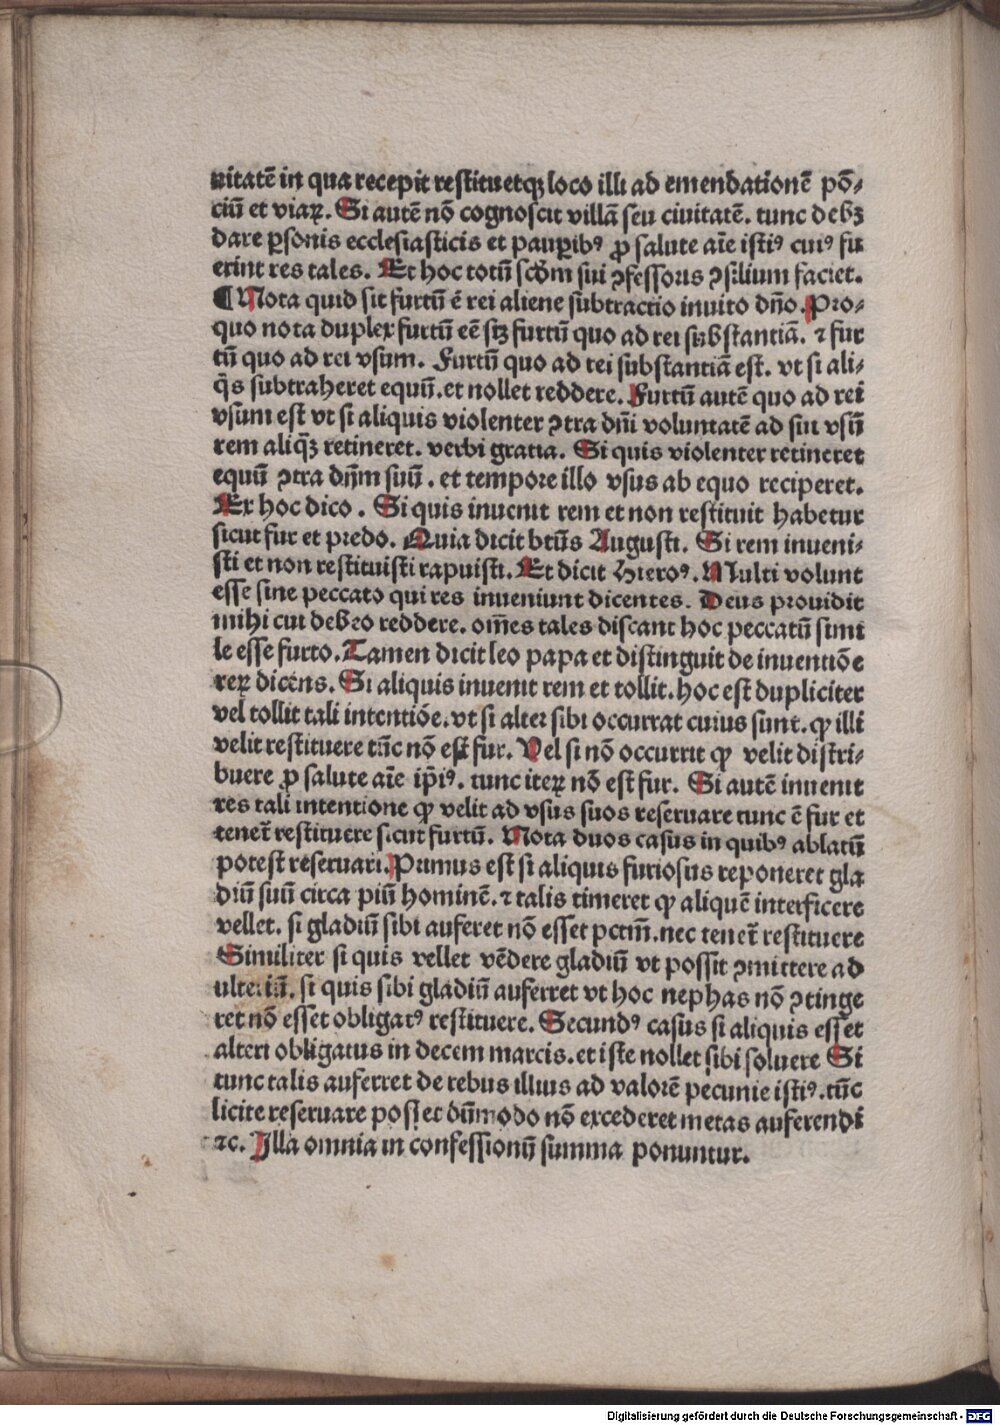 uitatē in qua recepit restituetqꝫ loco illi ad emendationē pō⸗
ciū et viaꝝ. Si autē nō cognoscit villā seu ciuitatē. tunc debꝫ
dare ꝑsonis ecclesiasticis et pauꝑibꝰ ꝓ salute aīe istiꝰ cuiꝰ fu
erint res tales. Et hoc totū scd̄m sui ꝯfessoris ꝯsilium faciet.
¶ Nota quid sit furtū ē rei aliene subtractio inuito dño. Pro⸗
quo nota duplex furtū eē sꝫ furtū quo ad rei substantiā. ⁊ fur
tū quo ad rei vsum. Furtū quo ad rei substantiā est. vt si ali⸗
q̄s subtraheret equū. et nollet reddere. Furtū autē quo ad rei
vsum est vt si aliquis violenter ꝯtra dn̄i voluntatē ad sui vsū
rem aliq̄ꝫ retineret. verbi gratia. Si quis violenter retineret
equū ꝯtra dn̄m suū. et tempore illo vsus ab equo reciperet.
Ex hoc dico. Si quis inuenit rem et non restituit habetur
sicut fur et predo. Quia dicit btūs Augusti. Si rem inueni⸗
sti et non restituisti rapuisti. Et dicit Hieroꝰ. Multi volunt
esse sine peccato qui res inueniunt dicentes. Deus prouidit
mihi cui debeo reddere. om̄es tales discant hoc peccatū simi
le esse furto. Tamen dicit leo papa et distinguit de inuentiōe
reꝝ dicēns. Si aliquis inuenit rem et tollit. hoc est dupliciter
vel tollit tali intentiōe. vt si alter sibi occurrat cuius sunt. ꝙ illi
velit restituere tūc nō est fur. Vel si nō occurrit ꝙ velit distri⸗
buere ꝓ salute aīe ip̄iꝰ. tunc iteꝝ nō est fur. Si autē inuenit
res tali intentione ꝙ velit ad vsus suos reseruare tunc ē fur et
tenet̄ restituere sicut furtū. Nota duos casus in quibꝰ ablatū
potest reseruari. Primus est si aliquis furiosus reponeret gla
diū suū circa piū hominē. ⁊ talis timeret ꝙ aliquē interficere
vellet. si gladiū sibi auferet nō esset pctm̄. nec tenet̄ restituere
Similiter si quis vellet vēdere gladiū vt possit ꝯmittere ad
ulteriū. si quis sibi gladiū auferret vt hoc nephas nō ꝯtinge
ret nō esset obligatꝰ restituere. Secundꝰ casus si aliquis esset
alteri obligatus in decem marcis. et iste nollet sibi soluere Si
tunc talis auferret de rebus illius ad valorē pecunie istiꝰ. tūc
licite reseruare posset dūmodo nō excederet metas auferendi
⁊c. Illa omnia in confessionū summa ponuntur.
Digitalisierung gefördert durch die Deutsche Forschungsgemeinschaft - DFG